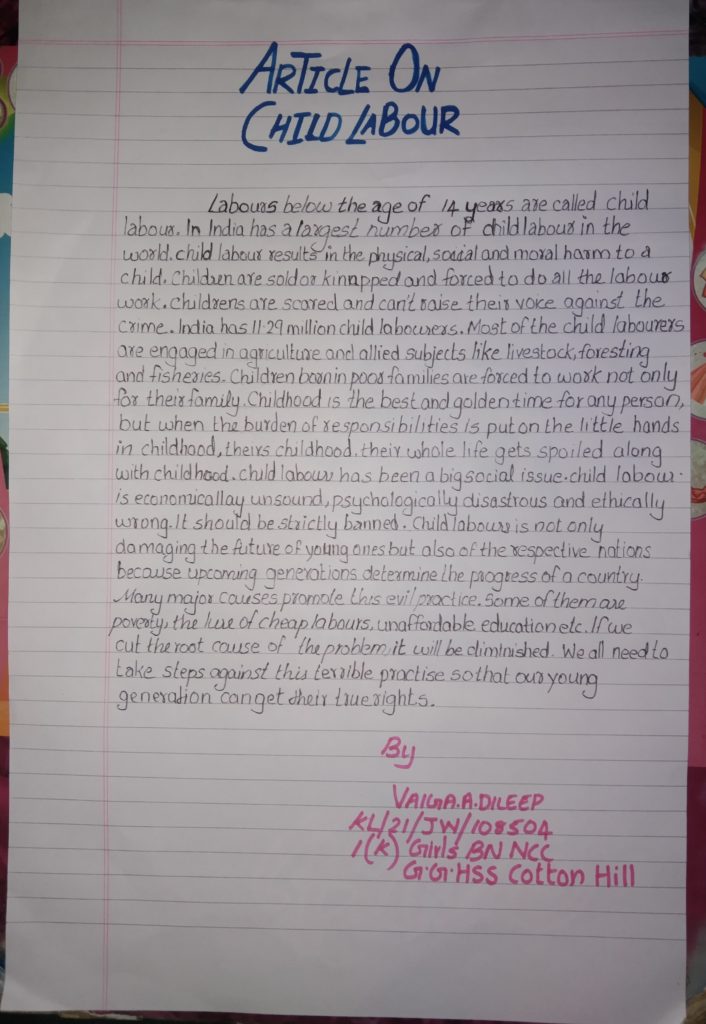 ARTICLE ON
CHILD LABOUR
Labours below the age of 14 years are called child
labour. In India has a largest number of child labour in the
world. child labour results in the physical, social and moral harm to a
child. Children are sold or kinnapped and forced to do all the labour
work. Childrens are scared and can't raise their voice against the
crime. India has 11.29 million child labourers. Most of the child labourers
are engaged in agriculture and allied subjects like livestock, foresting
and fisheries. Children born in poor families are forced to work not only
for their family. Childhood is the best and golden time for any person,
but when the burden of responsibilities is put on the little hands
in childhood, theirs childhood. their whole life gets spoiled along
with childhood. Child labour has been a big social issue. child labour
is economicallay unsound, psychologically disastrous and ethically
wrong. It should be strictly banned. Child labours is not only
damaging the future of young ones but also of the respective nations
because upcoming generations determine the progress of a country.
Many major causes promote this evil practice. Some of them are
poverty, the lure of cheap labours, unaffordable education etc. If we
cut the root cause of the problem, it will be diminished. We all need to
take steps against this terrible practise so that our young
generation can get their true rights.
By
VAIGA.A.DILEEP
KL/21/JW/108504
1(K) Girls BN NCC
G.G.HSS Cotton Hill